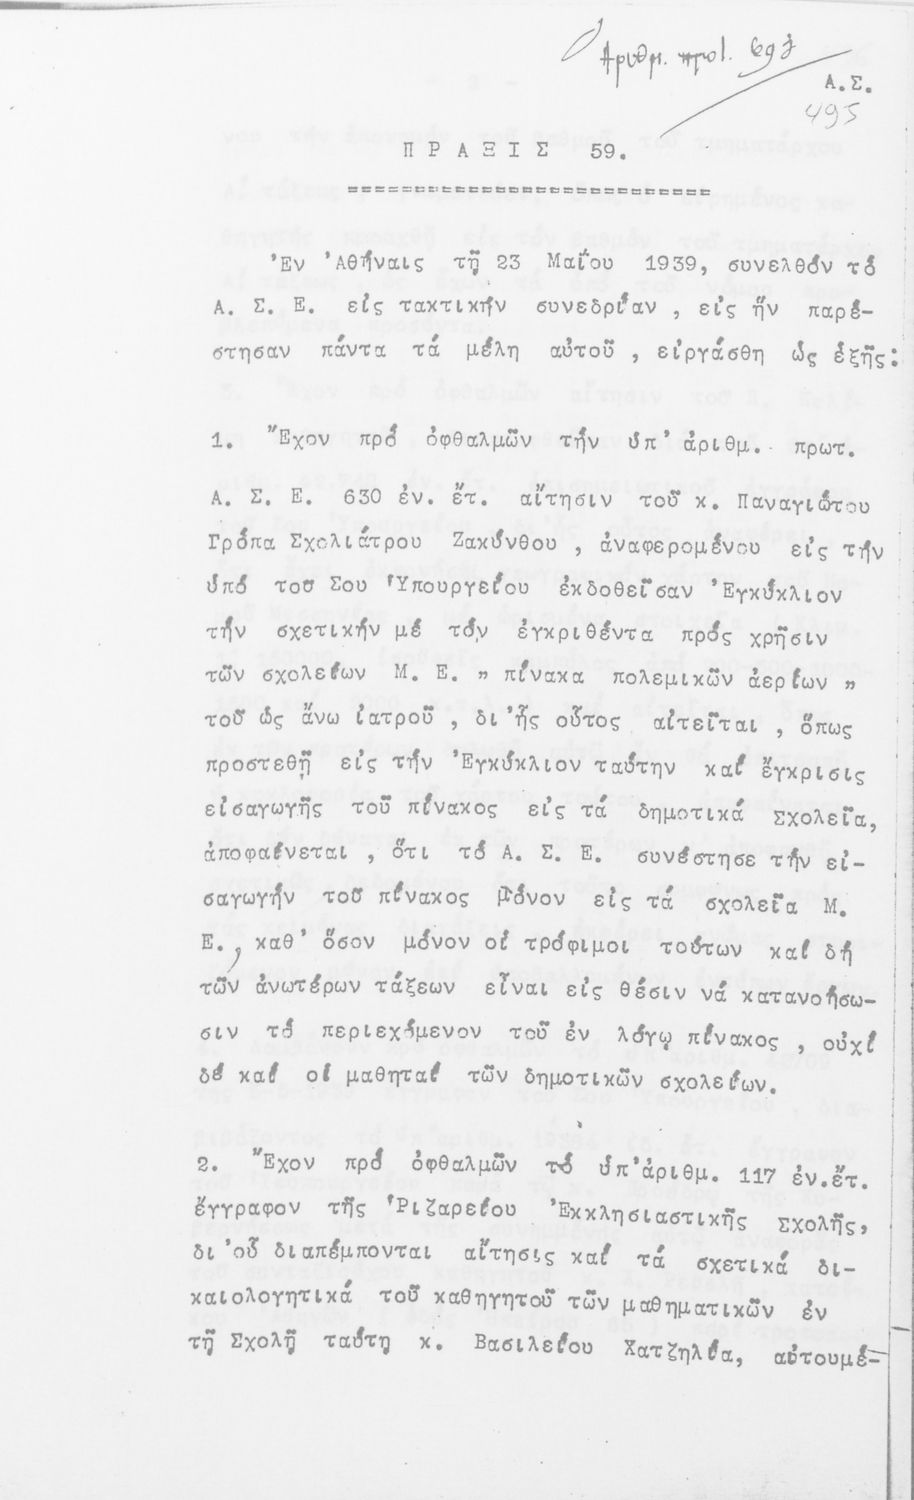 Αριθμ. πρωτ. 693
Α.Σ.
495
ΠΡΑΞΙΣ 59.
===========================
Ἐν Ἀθήναις τῇ 23 Μαΐου 1939, συνελθόν τό
Α. Σ. Ε. εἰς τακτικήν συνεδρίαν , εἰς ἥν παρέ-
στησαν πάντα τά μέλη αὐτοῦ , εἰργάσθη ὡς ἑξῆς:
1. Ἔχον πρό ὀφθαλμῶν τήν ὑπ' ἀριθμ. πρωτ.
Α. Σ. Ε. 630 ἐν. ἔτ. αἴτησιν τοῦ κ. Παναγιώτου
Γρόπα Σχολιάτρου Ζακύνθου , ἀναφερομένου εἰς τήν
ὑπό του Σου Ὑπουργείου ἐκδοθεῖσαν Ἐγκύκλιον
τήν σχετικήν μέ τόν ἐγκριθέντα πρός χρῆσιν
τῶν σχολείων Μ. Ε. " πίνακα πολεμικῶν ἀερίων "
τοῦ ὡς ἄνω ἰατροῦ , δι' ἧς οὗτος αἰτεῖται , ὅπως
προστεθῇ εἰς τήν Ἐγκύκλιον ταύτην καί ἔγκρισις
εἰσαγωγῆς τοῦ πίνακος εἰς τά δημοτικά Σχολεῖα,
ἀποφαίνεται , ὅτι τό Α. Σ. Ε. συνέστησε τήν εἰ-
σαγωγήν τοῦ πίνακος μόνον εἰς τά σχολεῖα Μ.
Ε., καθ' ὅσον μόνον οἱ τρόφιμοι τούτων καί δή
τῶν ἀνωτέρων τάξεων εἶναι εἰς θέσιν νά κατανοήσω-
σιν τό περιεχόμενον τοῦ ἐν λόγῳ πίνακος , οὐχί
δέ καί οἱ μαθηταί τῶν δημοτικῶν σχολείων.
2. Ἔχον πρό ὀφθαλμῶν τό ὑπ' ἀριθμ. 117 ἐν.ἔτ.
ἔγγραφον τῆς Ῥιζαρείου Ἐκκλησιαστικῆς Σχολῆς,
δι' οὗ διαπέμπονται αἴτησις καί τά σχετικά δι-
καιολογητικά τοῦ καθηγητοῦ τῶν μαθηματικῶν ἐν
τῇ Σχολῇ ταύτῃ κ. Βασιλείου Χατζηλία, αὐτουμέ-